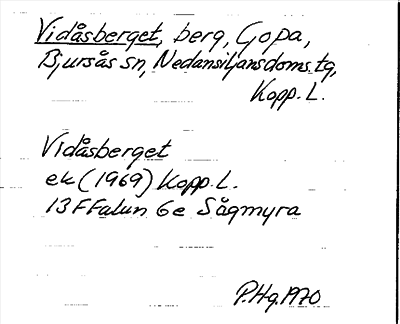 Vidåsberget, berg, Gopa,
Bjursås sn, Nedansiljansdoms tg,
Kopp. L.
Vidåsberget
ek (1969) Kopp. L.
13 F Falun 6e Sågmyra
P.Hg. 1970